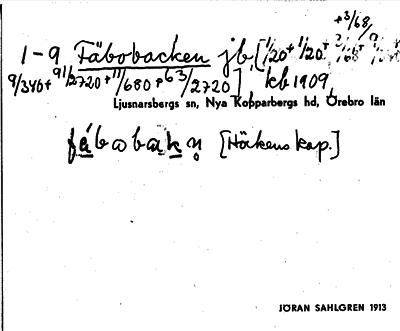 +3/68,
1-9 Fäbobacken jb, [1/20+1/20+
9/340+91/2720+11/680+63/2720], kb 1909,
Ljusnarsbergs sn, Nya Kopparbergs hd, Örebro län
[Hörkens kap.]
JÖRAN SAHLGREN 1913